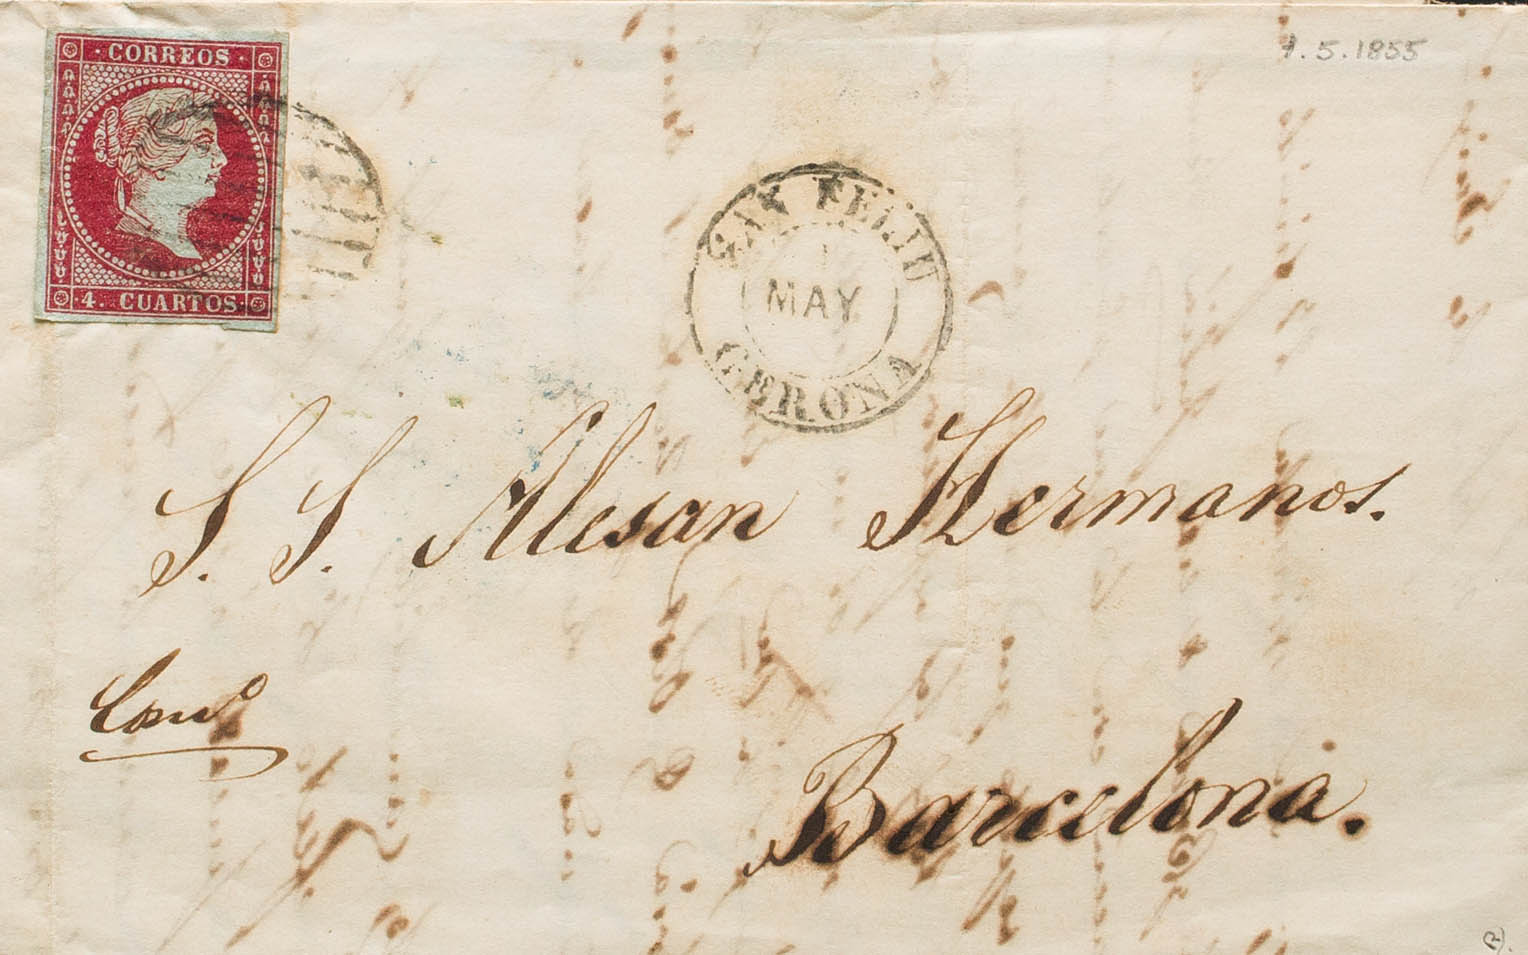 CORREOS
4. CUARTOS
1.5.1855
SAN FELIU
1
MAY
GERONA
S. S. Alesan Hermanos.
Barcelona.